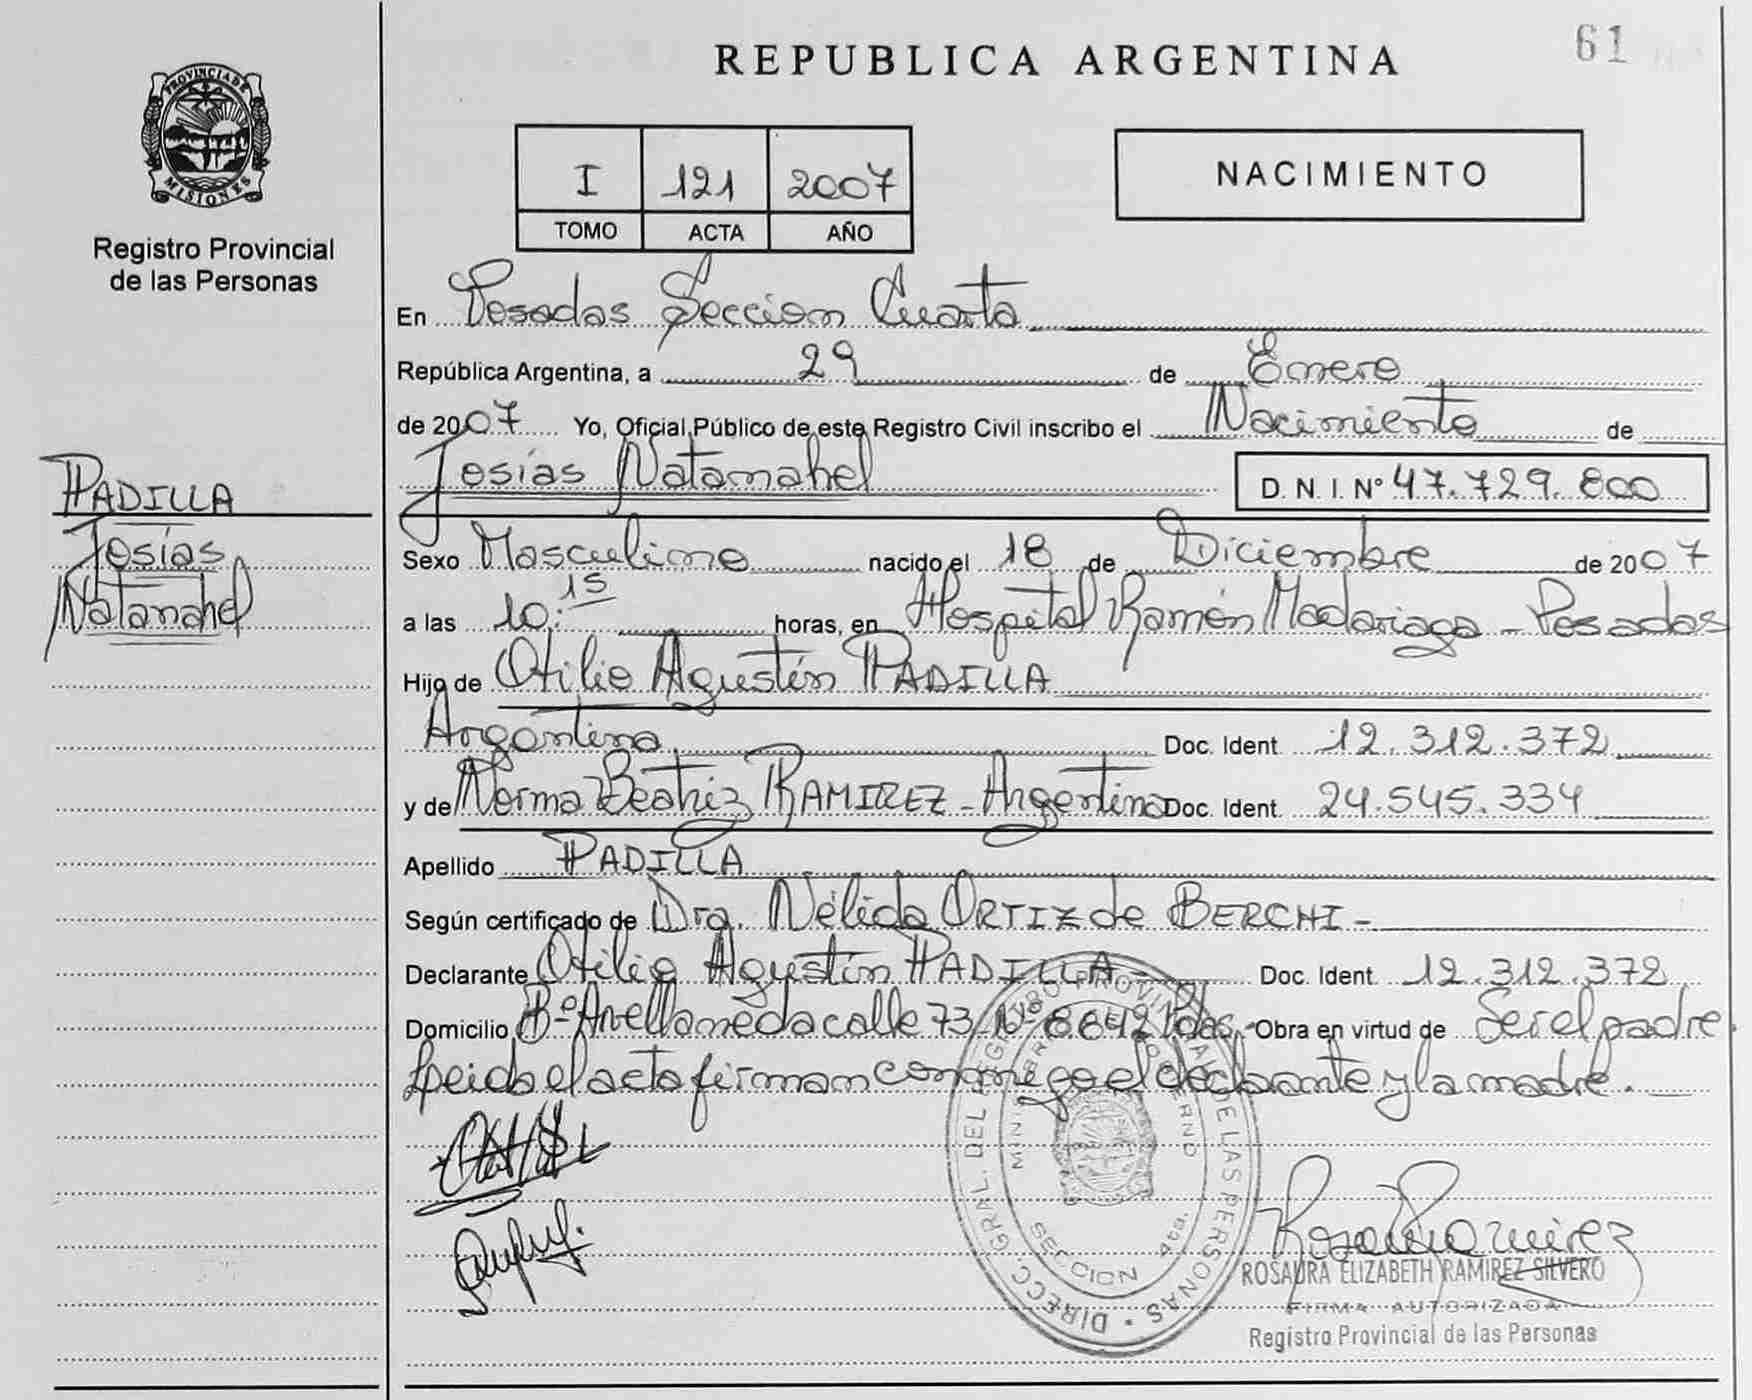 REPUBLICA ARGENTINA
61
PROVINCIA DE
MISIONES
Registro Provincial
de las Personas
I 121 2007
TOMO ACTA AÑO
NACIMIENTO
En Posadas Sección Cuarta
República Argentina, a 29 de Enero
de 2007 Yo, Oficial Público de este Registro Civil inscribo el Nacimiento de
Josías Natanahel D. N. I. Nº 47.729.800
PADILLA
Josías
Natanahel
Sexo Masculino nacido el 18 de Diciembre de 2007
a las 10:15 horas, en Hospital Ramón Madariaga - Posadas
Hijo de Otilio Agustín PADILLA
Argentino Doc. Ident. 12.312.372
y de Norma Beatriz RAMIREZ - Argentina Doc. Ident. 24.545.334
Apellido PADILLA
Según certificado de Dra. Nélida ORTIZ de BERCHI -
Declarante Otilio Agustín PADILLA - Doc. Ident. 12.312.372
Domicilio Bº Avellaneda calle 73 Nº 8642 Pdas.- Obra en virtud de Ser el padre.
Leida el acta firman conmigo el declarante y la madre.
DIREC. GRAL. DEL REGISTRO PROVINCIAL DE LAS PERSONAS
SECCION 4ta.
ROSAURA ELIZABETH RAMIREZ SILVERO
FIRMA AUTORIZADA
Registro Provincial de las Personas